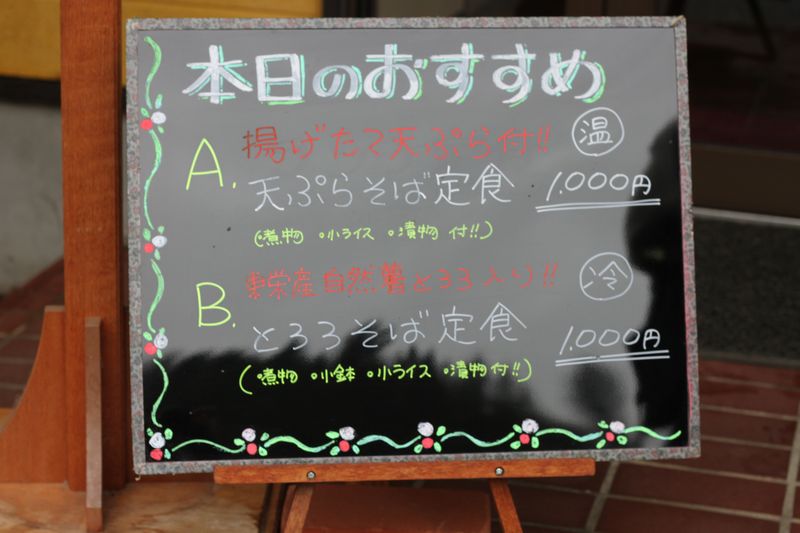 本日のおすすめ
A. 揚げたて天ぷら付!! 温
天ぷらそば定食 1,000円
(•煮物 •小ライス •漬物 付!!)
B. 東栄産自然薯とろろ入り!! 冷
とろろそば定食 1,000円
(•煮物 •小鉢 •小ライス •漬物付!!)